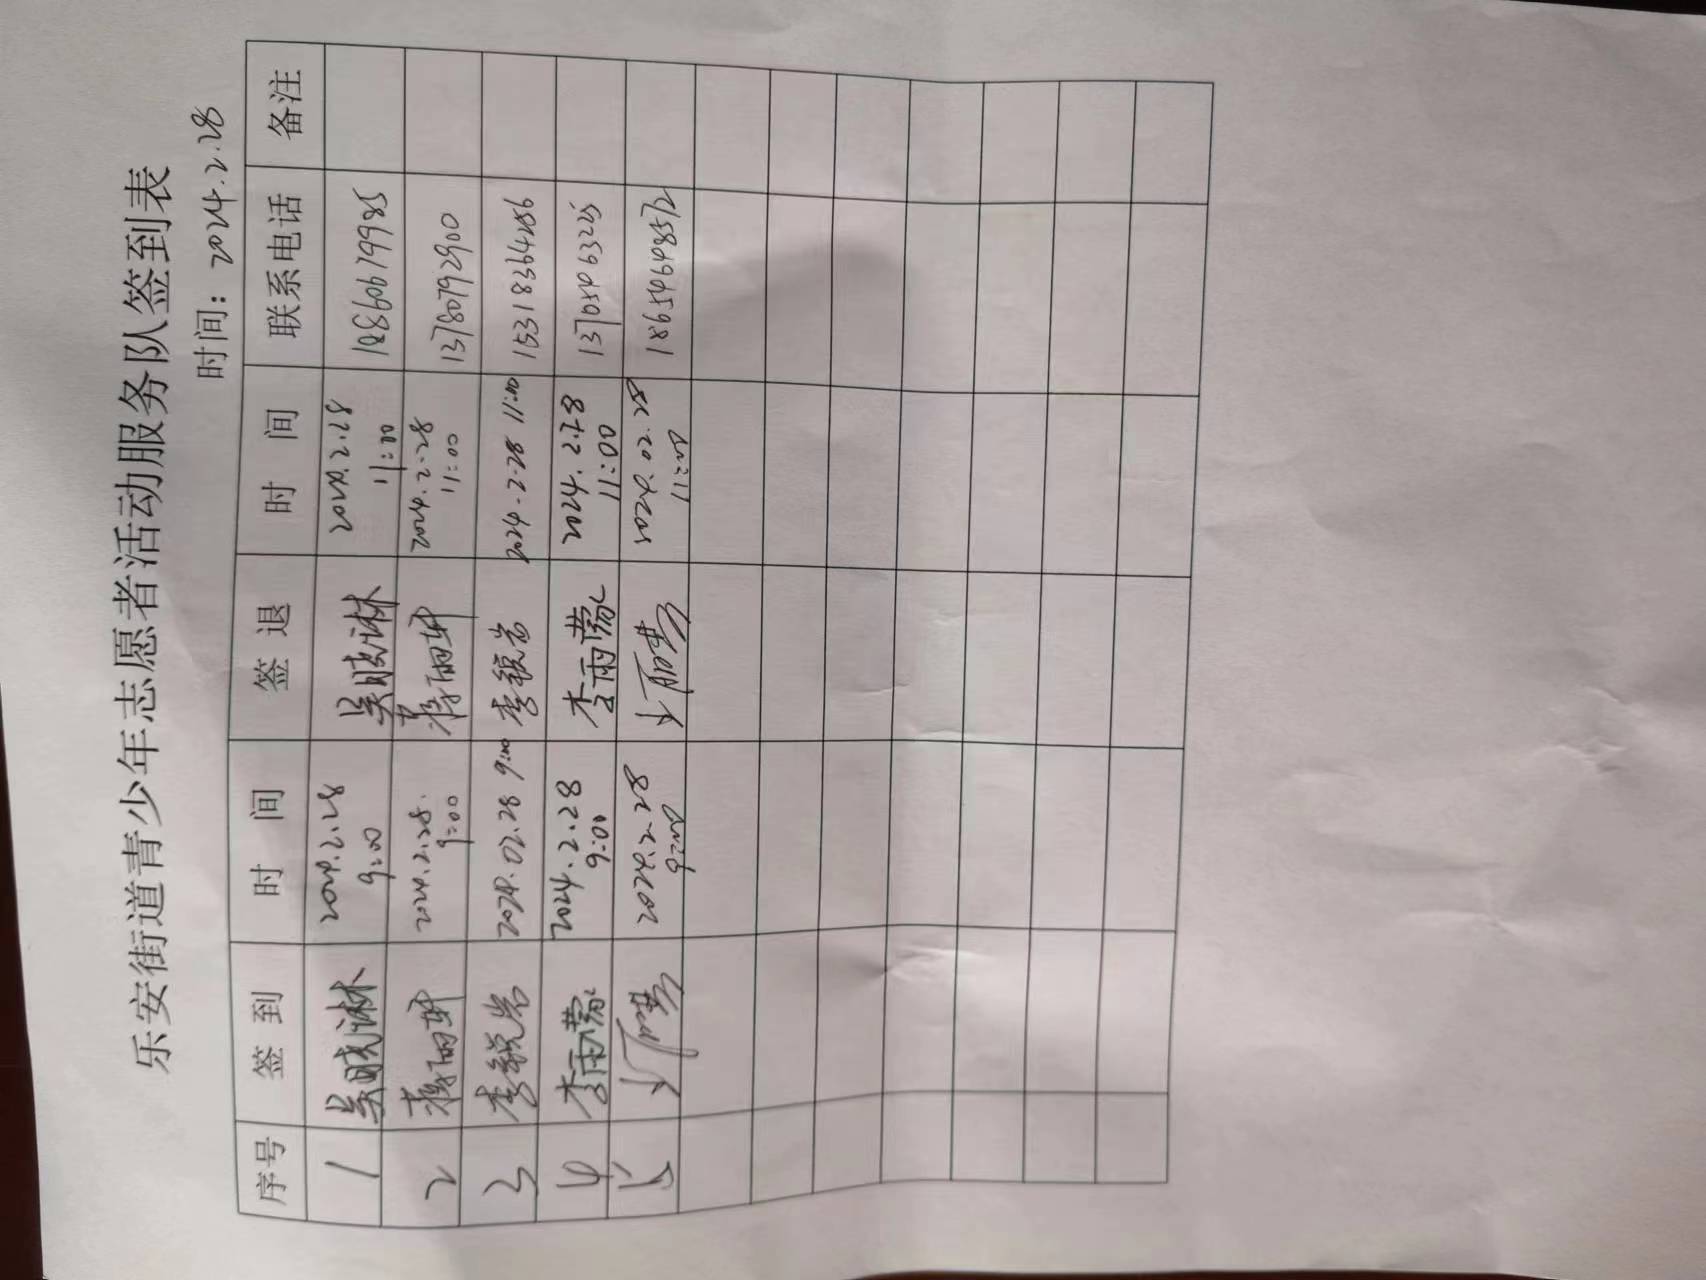 乐安街道青少年志愿者活动服务队签到表
时间：2024.2.28
序号 签到 时间 签退 时间 联系电话 备注
1 吴晓琳 2024.2.28 9:00 吴晓琳 2024.2.28 11:00 18860679985
2 蒋丽坤 2024.2.28. 9:00 蒋丽坤 2024.2.28 11:00 13780792900
3 李锐岩 2024.02.28 9:00 李锐岩 2024.2.28 11:00 15318364286
4 李雨蒙 2024.2.28 9:00 李雨蒙 2024.2.28 11:00 13705463225
5 2024.2.28 9:00 11:00